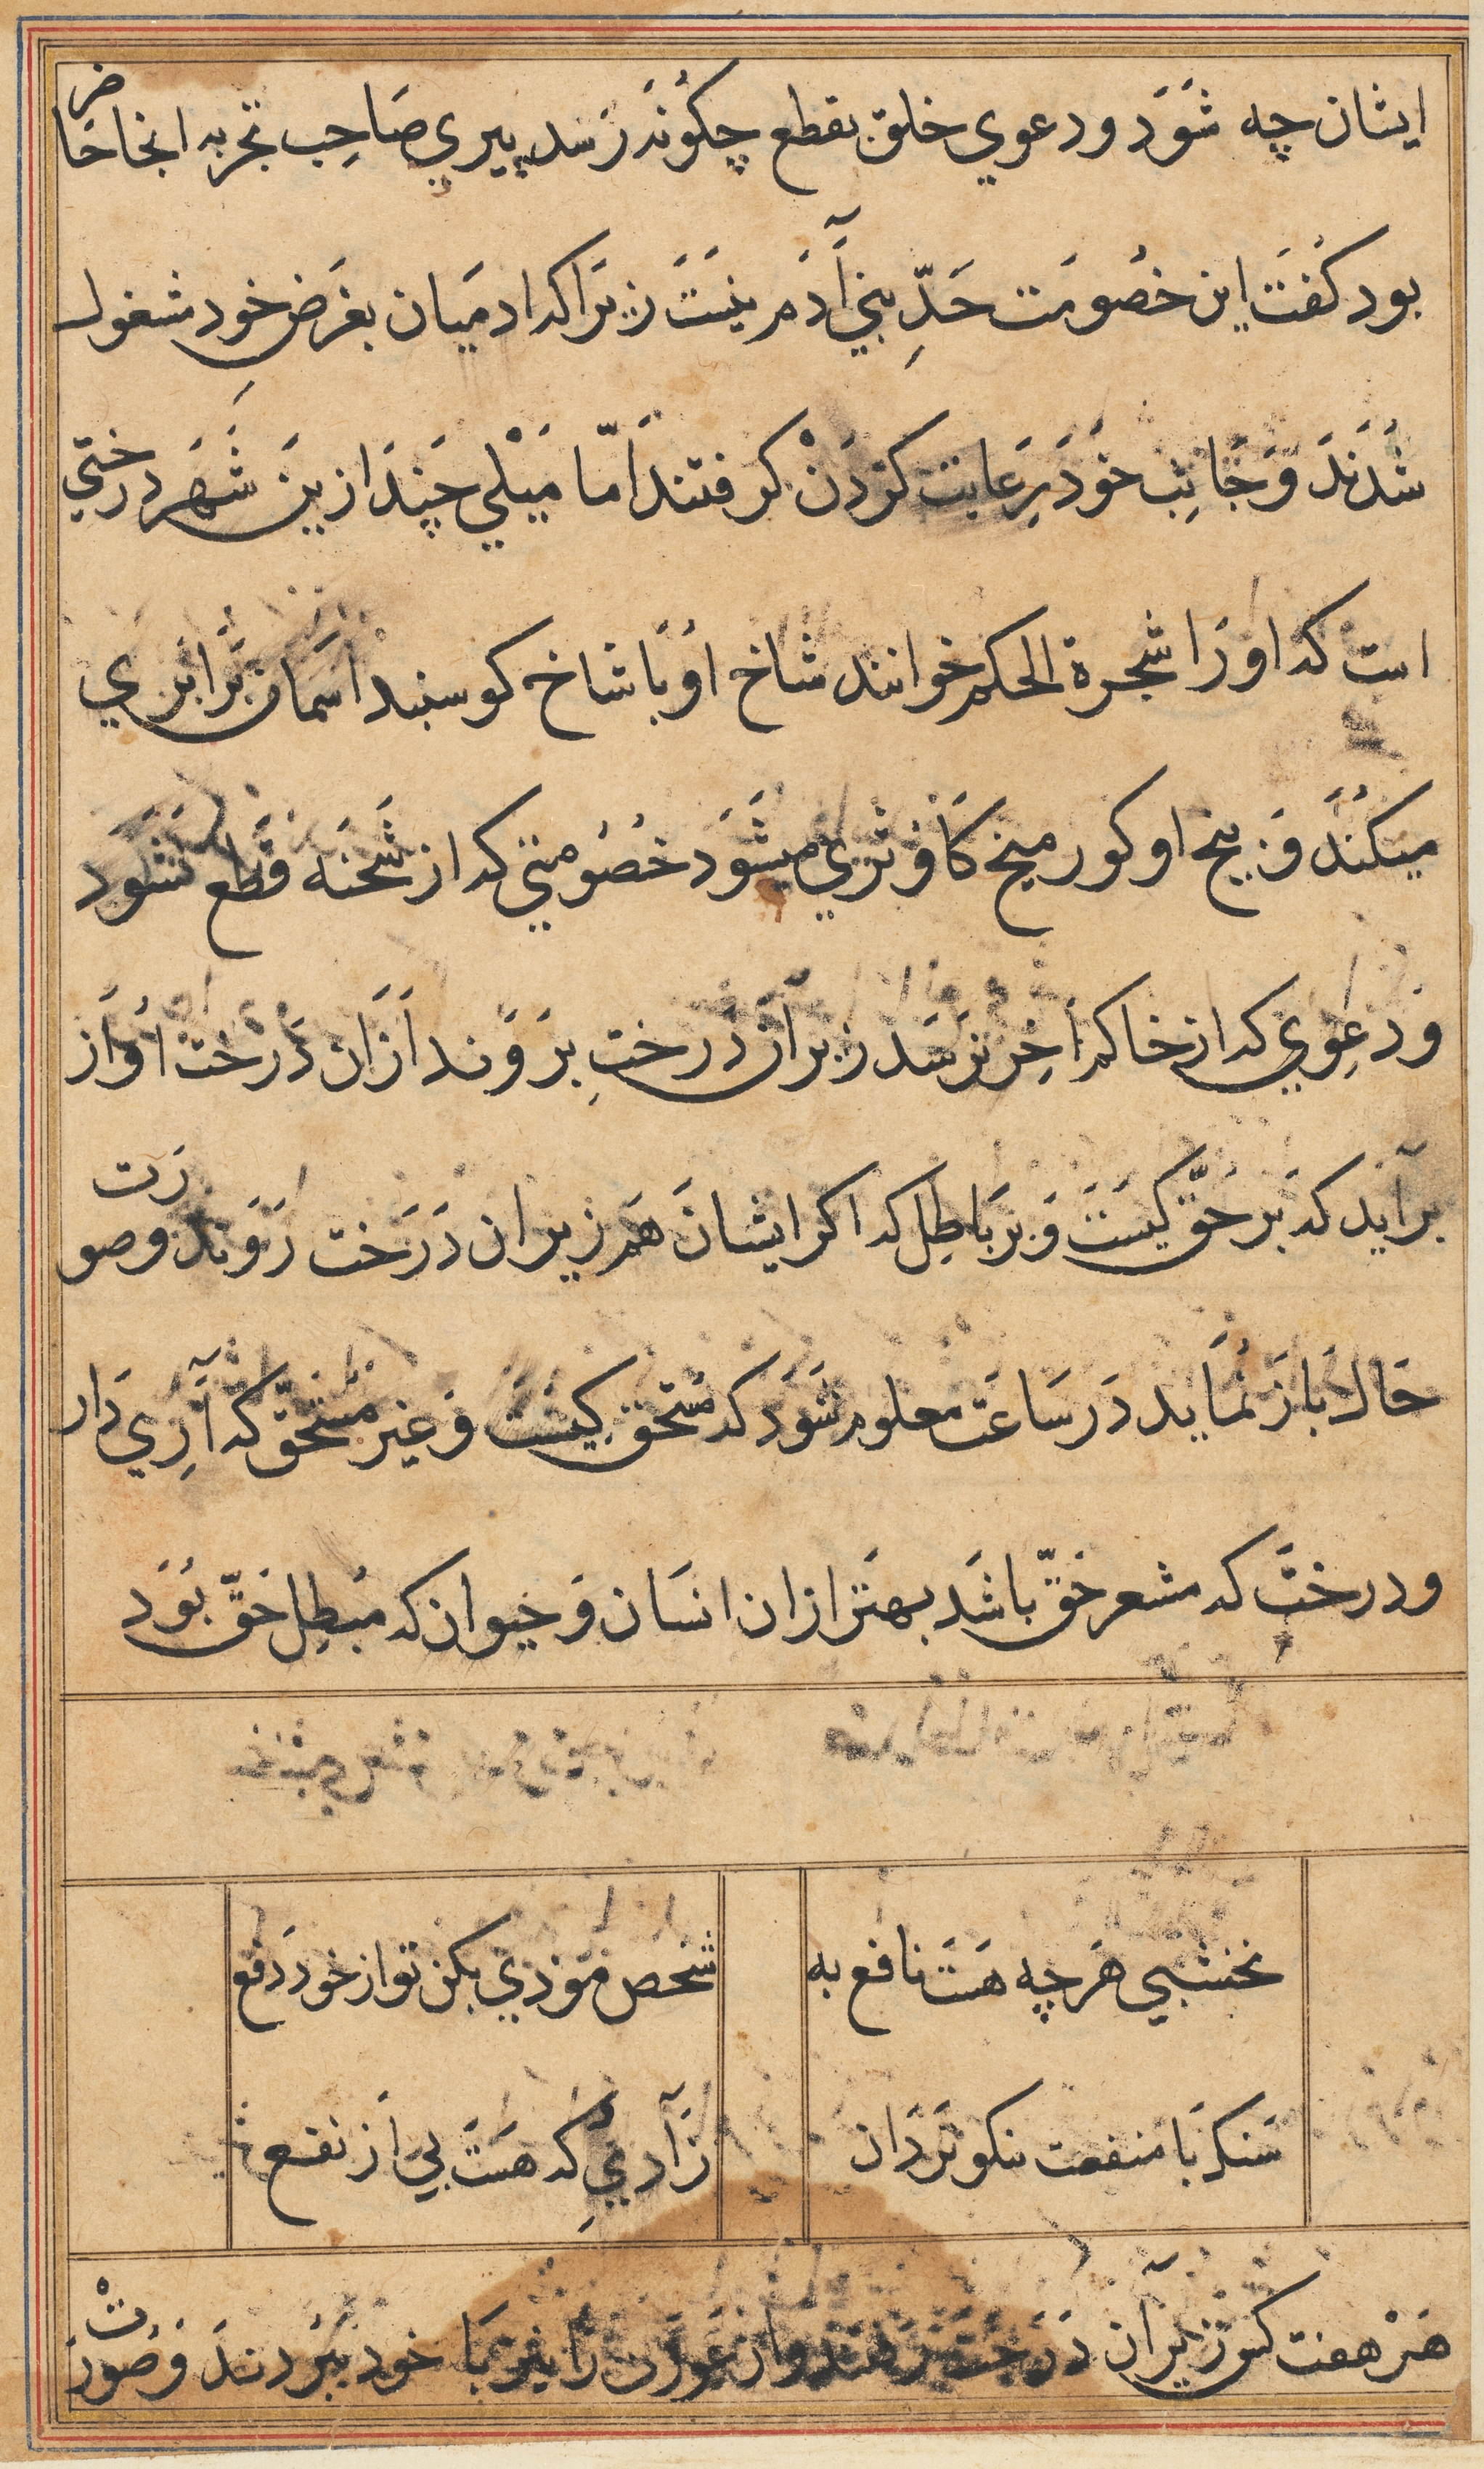 ایشان چه شَوَد و دعوي خلق بقطع چکونَه رَسَد پیري صَاحِب تجربه انجا حَاضر
بود کفَت این خصُومَت حَدِّ بنی آدَم نیَستَ زیرَاکه ادمیَان بغرَض خود مشغول
شَدَندَ وَ جَانِب خوَد رِعَایت کرَدَنْ کرفتند اَمّا مَیْلي چَندَ ازین شَهَر درختي
است که او رَا شجرة الحکم خوانند شاخ اوُ بَا شاخ کوسبند اسمَان برَابَري
میکنَدَ وَ بیخ او کور میخ کاَو ثرَي میشَوَد خصُومتي که از شَحنَه قطَع نَشَوَد
وَ دعِوي که از حَاکم اخِر نرَسَد زیر اَن دَرختِ برَوَند اَزَان دَرَخت اوَاَز
برآید که بَر حَقّ کیسَتَ وَ بَر بَاطِل که اکر ایشانَ هَم زیر ان دَرَخت رَوَند و صورَت
حَال بَاز نمُاَید دَر سَاعَت معلوم شَوَد که مُستحق کیسَتَ وَ غیر مُستحَقّ که آرِي دَار
و درختَ که مشعر حَقّ باشَد بهتَر ازان انسَان وَ حَیوان که مُبطِل حَقّ بوَُد
نخشبي هَرچه هَستَ نافع به
شخص موَذي بکن تو از خود دَفع
سَنک بَا منفعت نکوترَ دَان
زَآدمي که هَستَ بي اَز نفع
هَرْ هفت کس زیر آن دَرَخت رَفتَند و ان عوَرَت رَا نیز بَا خود ببرَدندَ وَ صُورَتْ